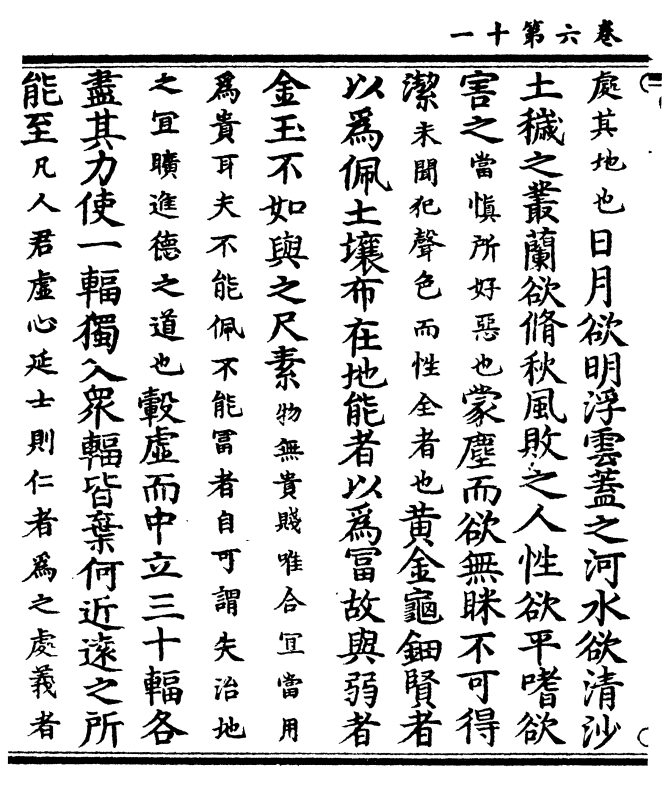 卷六第十一
處其地也日月欲明浮雲蓋之河水欲清沙
土穢之叢蘭欲脩秋風敗之人性欲平嗜欲
害之當慎所好惡也蒙塵而欲無眯不可得
潔未聞犯聲色而性全者也黃金龜鈿賢者
以爲佩土壤布在地能者以爲冨故與弱者
金玉不如與之尺素物無貴賤唯合宜當用
爲貴耳夫不能佩不能冨者自可謂失治地
之宜曠進德之道也轂虛而中立三十輻各
盡其力使一輻獨入衆輻皆棄何近遠之所
能至凡人君虛心延士則仁者爲之處義者